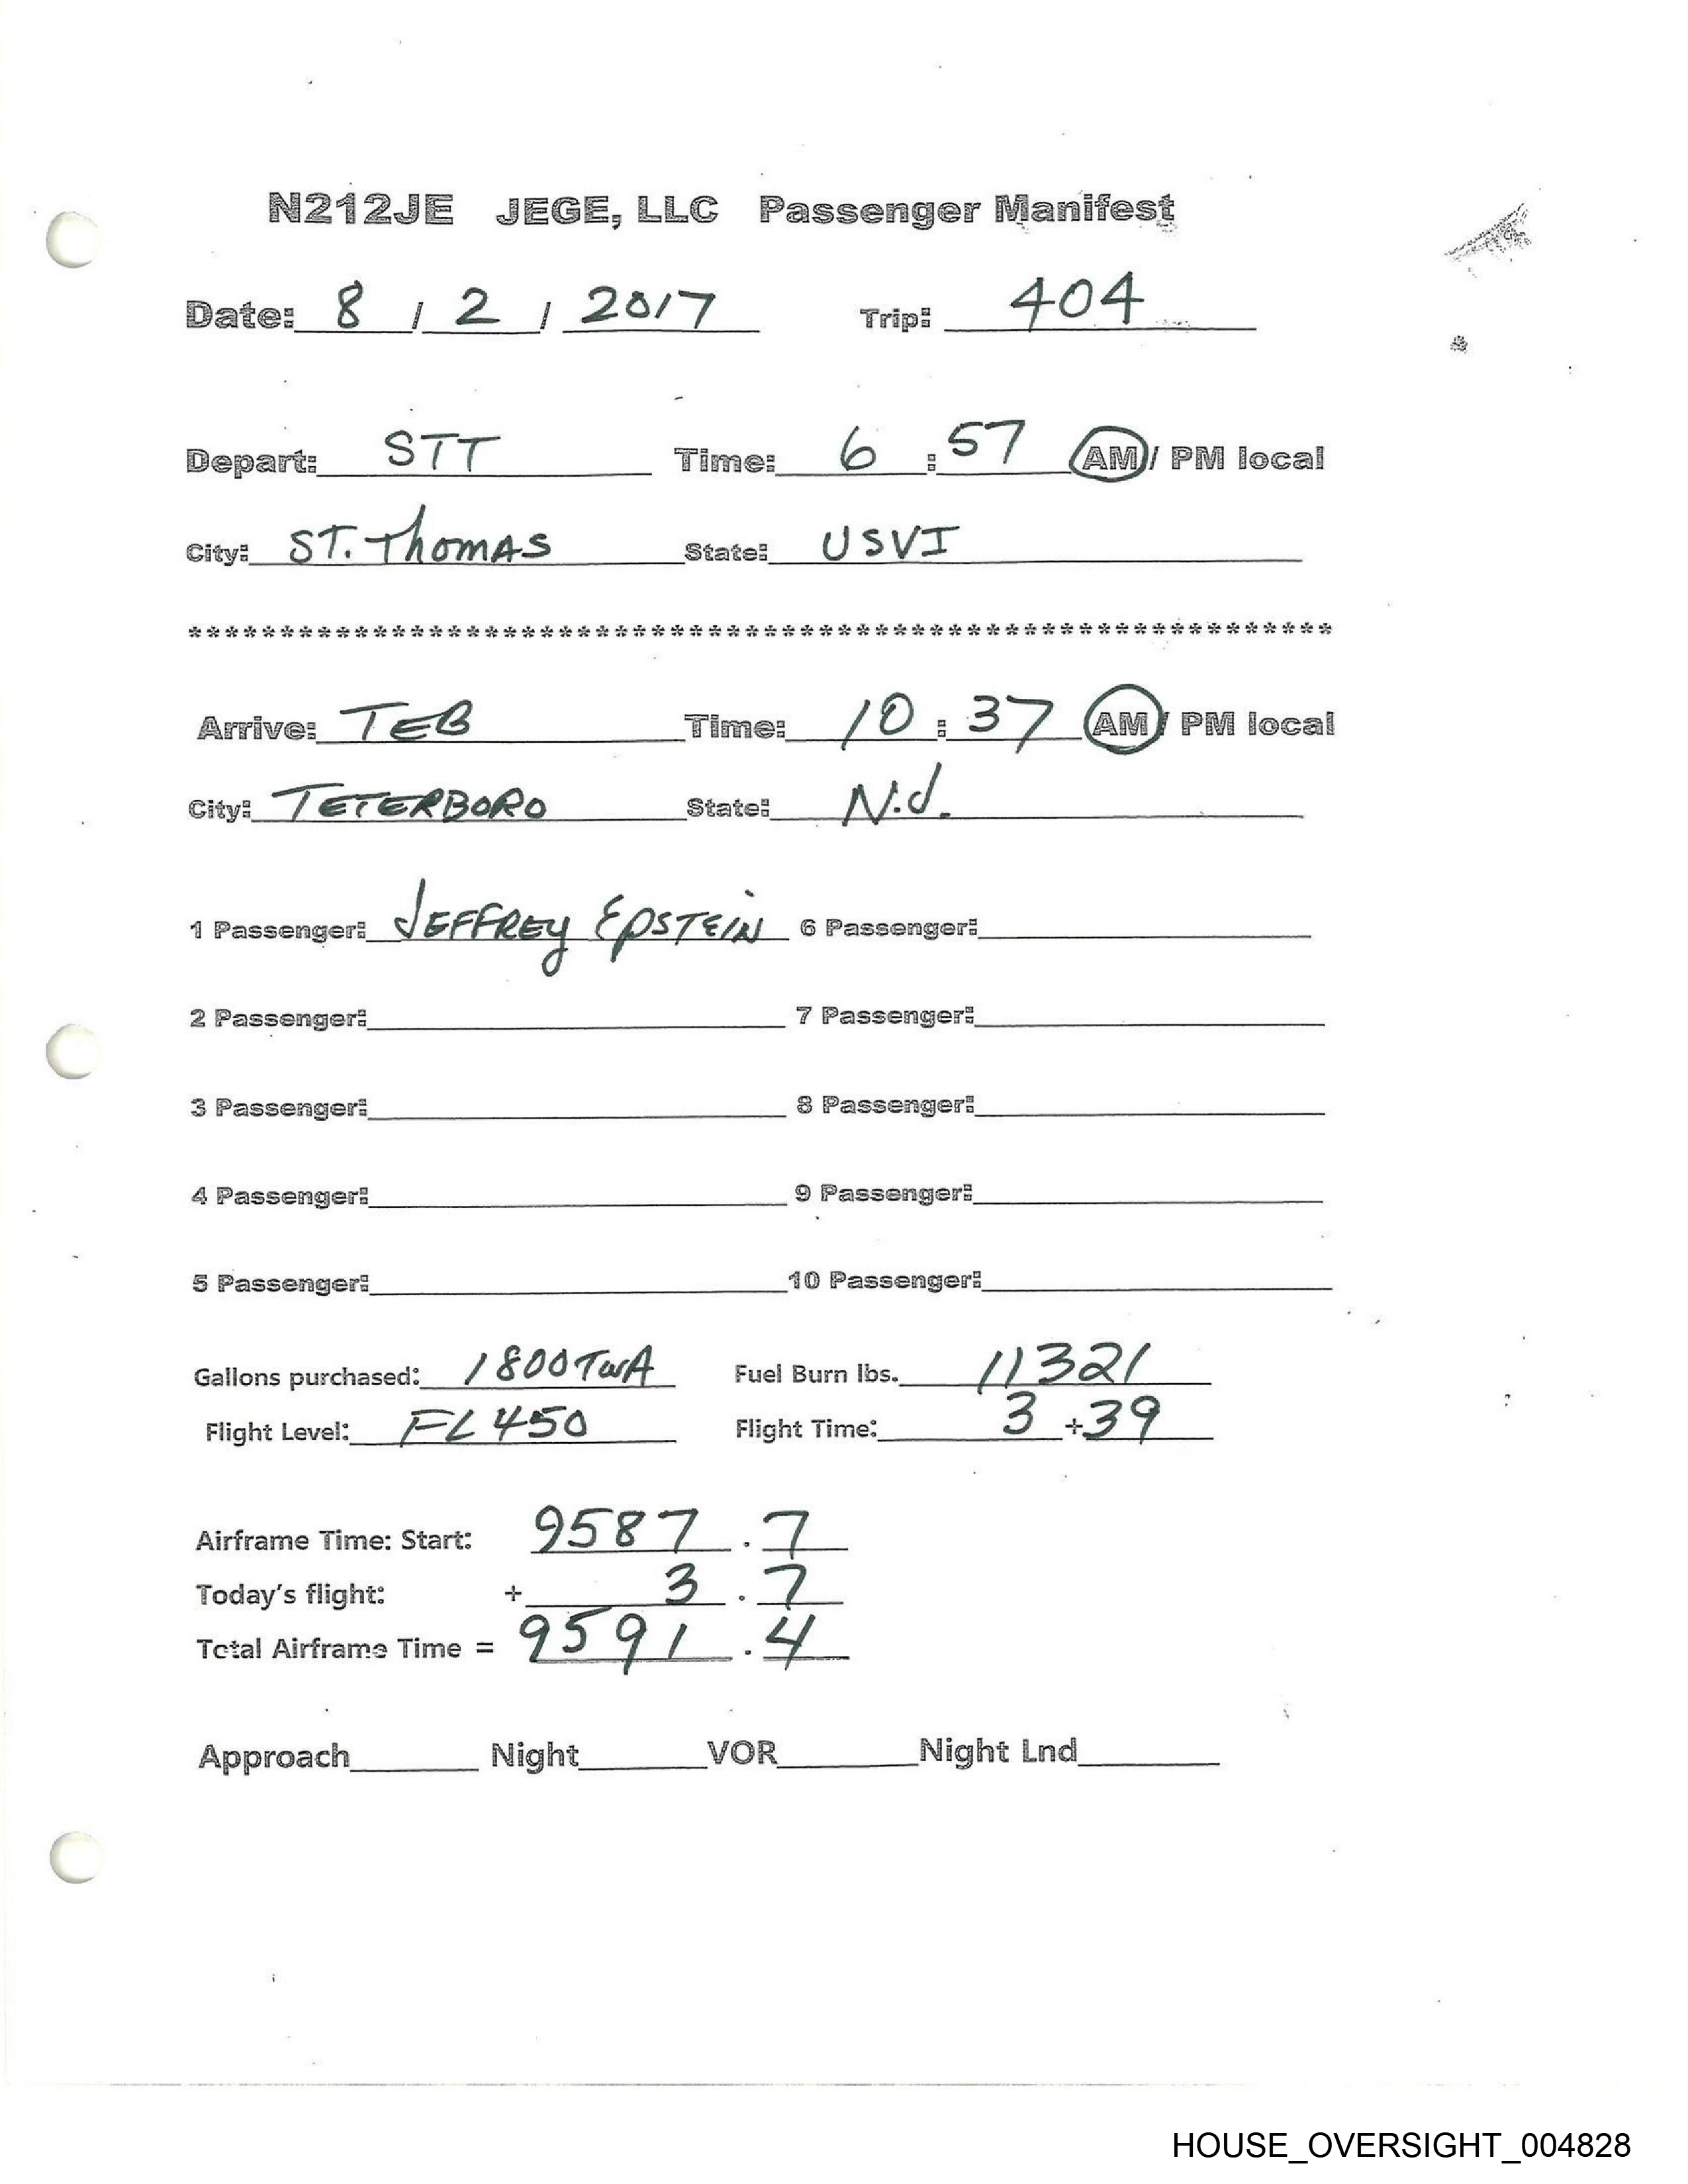 N212JE JEGE, LLC Passenger Manifest
Date: 8 / 2 / 2017 Trip: 404
Depart: STT Time: 6 : 57 AM / PM local
City: ST. Thomas State: USVI
**************************************************************
Arrive: TEB Time: 10 : 37 AM / PM local
City: TETERBORO State: N.J.
1 Passenger: JEFFREY EPSTEIN 6 Passenger:
2 Passenger: 7 Passenger:
3 Passenger: 8 Passenger:
4 Passenger: 9 Passenger:
5 Passenger: 10 Passenger:
Gallons purchased: 1800 TWA Fuel Burn lbs. 11321
Flight Level: FL 450 Flight Time: 3 + 39
Airframe Time: Start: 9587 . 7
Today's flight: + 3 . 7
Total Airframe Time = 9591 . 4
Approach Night VOR Night Lnd
HOUSE_OVERSIGHT_004828